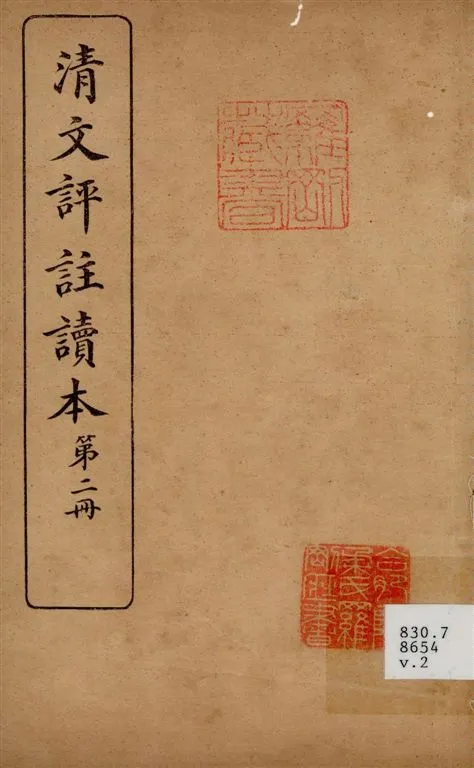 清文評註讀本第二冊
藏書
830.7
8654
v.2